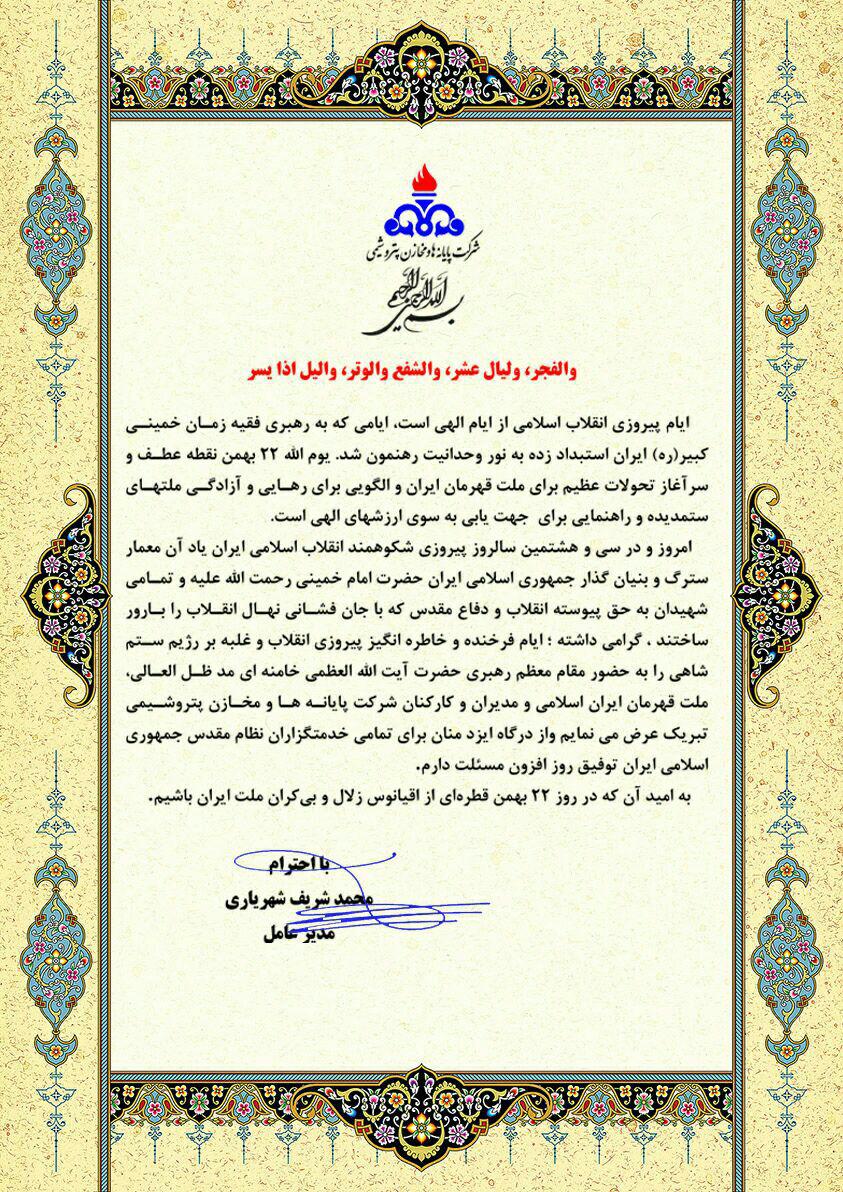 شرکت پایانه ها و مخازن پتروشیمی
بسم الله الرحمن الرحیم
والفجر، ولیال عشر، والشفع والوتر، والیل اذا یسر
ایام پیروزی انقلاب اسلامی از ایام الهی است، ایامی که به رهبری فقیه زمان خمینی
کبیر(ره) ایران استبداد زده به نور وحدانیت رهنمون شد. یوم الله ۲۲ بهمن نقطه عطف و
سرآغاز تحولات عظیم برای ملت قهرمان ایران و الگویی برای رهایی و آزادگی ملتهای
ستمدیده و راهنمایی برای جهت یابی به سوی ارزشهای الهی است.
امروز و در سی و هشتمین سالروز پیروزی شکوهمند انقلاب اسلامی ایران یاد آن معمار
سترگ و بنیان گذار جمهوری اسلامی ایران حضرت امام خمینی رحمت الله علیه و تمامی
شهیدان به حق پیوسته انقلاب و دفاع مقدس که با جان فشانی نهال انقلاب را بارور
ساختند ، گرامی داشته ؛ ایام فرخنده و خاطره انگیز پیروزی انقلاب و غلبه بر رژیم ستم
شاهی را به حضور مقام معظم رهبری حضرت آیت الله العظمی خامنه ای مد ظل العالی،
ملت قهرمان ایران اسلامی و مدیران و کارکنان شرکت پایانه ها و مخازن پتروشیمی
تبریک عرض می نمایم واز درگاه ایزد منان برای تمامی خدمتگزاران نظام مقدس جمهوری
اسلامی ایران توفیق روز افزون مسئلت دارم.
به امید آن که در روز ۲۲ بهمن قطره‌ای از اقیانوس زلال و بی‌کران ملت ایران باشیم.
با احترام
محمد شریف شهریاری
مدیر عامل